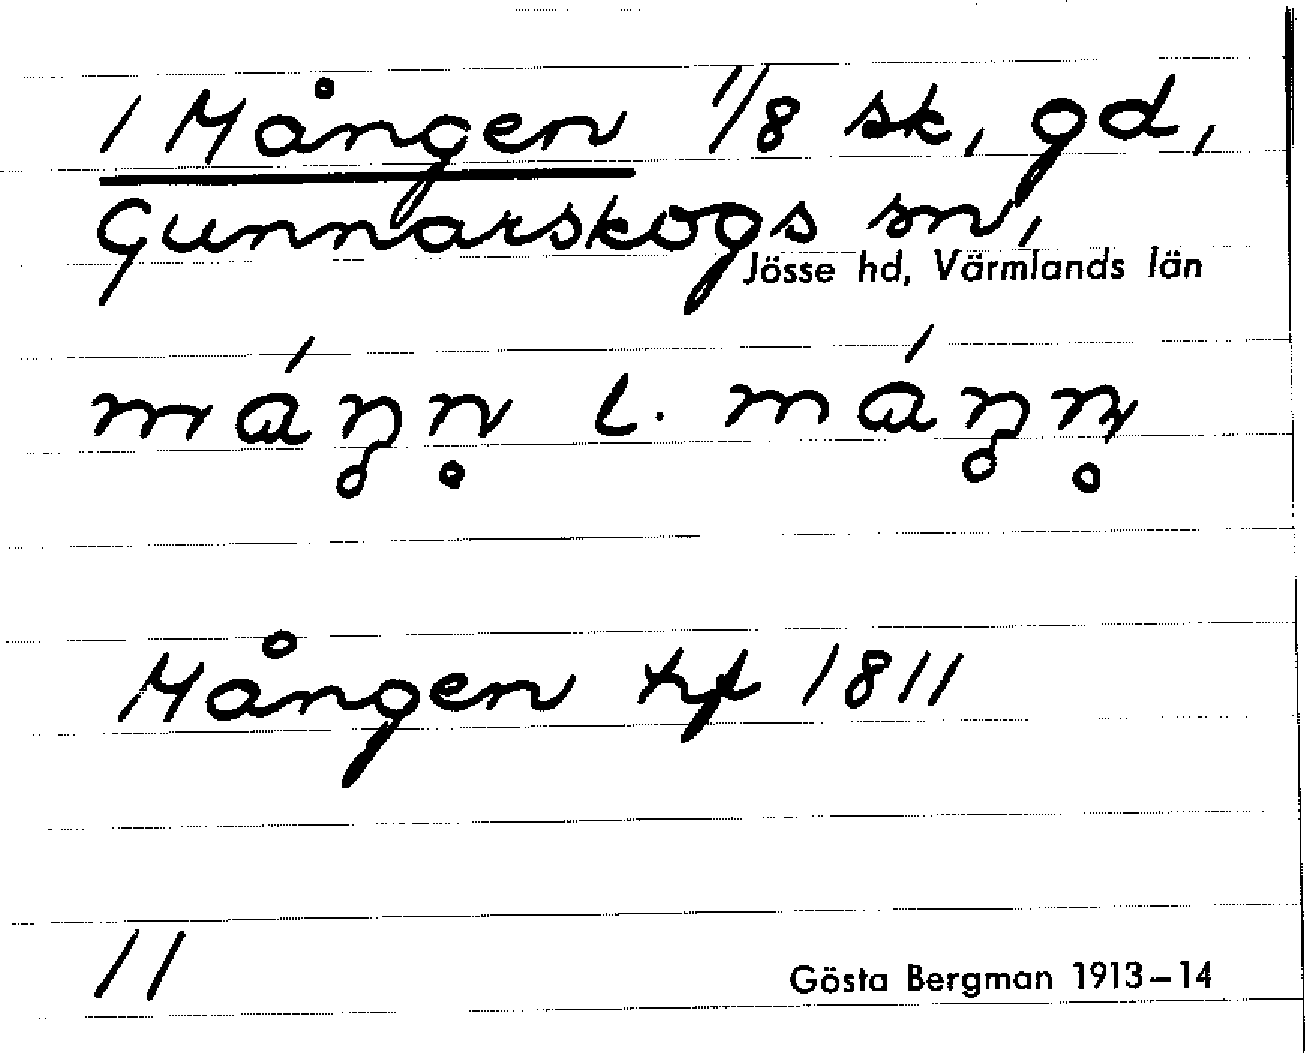 1 Mången 1/8 sk, gd,
Gunnarskogs sn,
Jösse hd, Värmlands län
máŋn̥ l. máŋn̥
Mången trf 1811
11
Gösta Bergman 1913–14